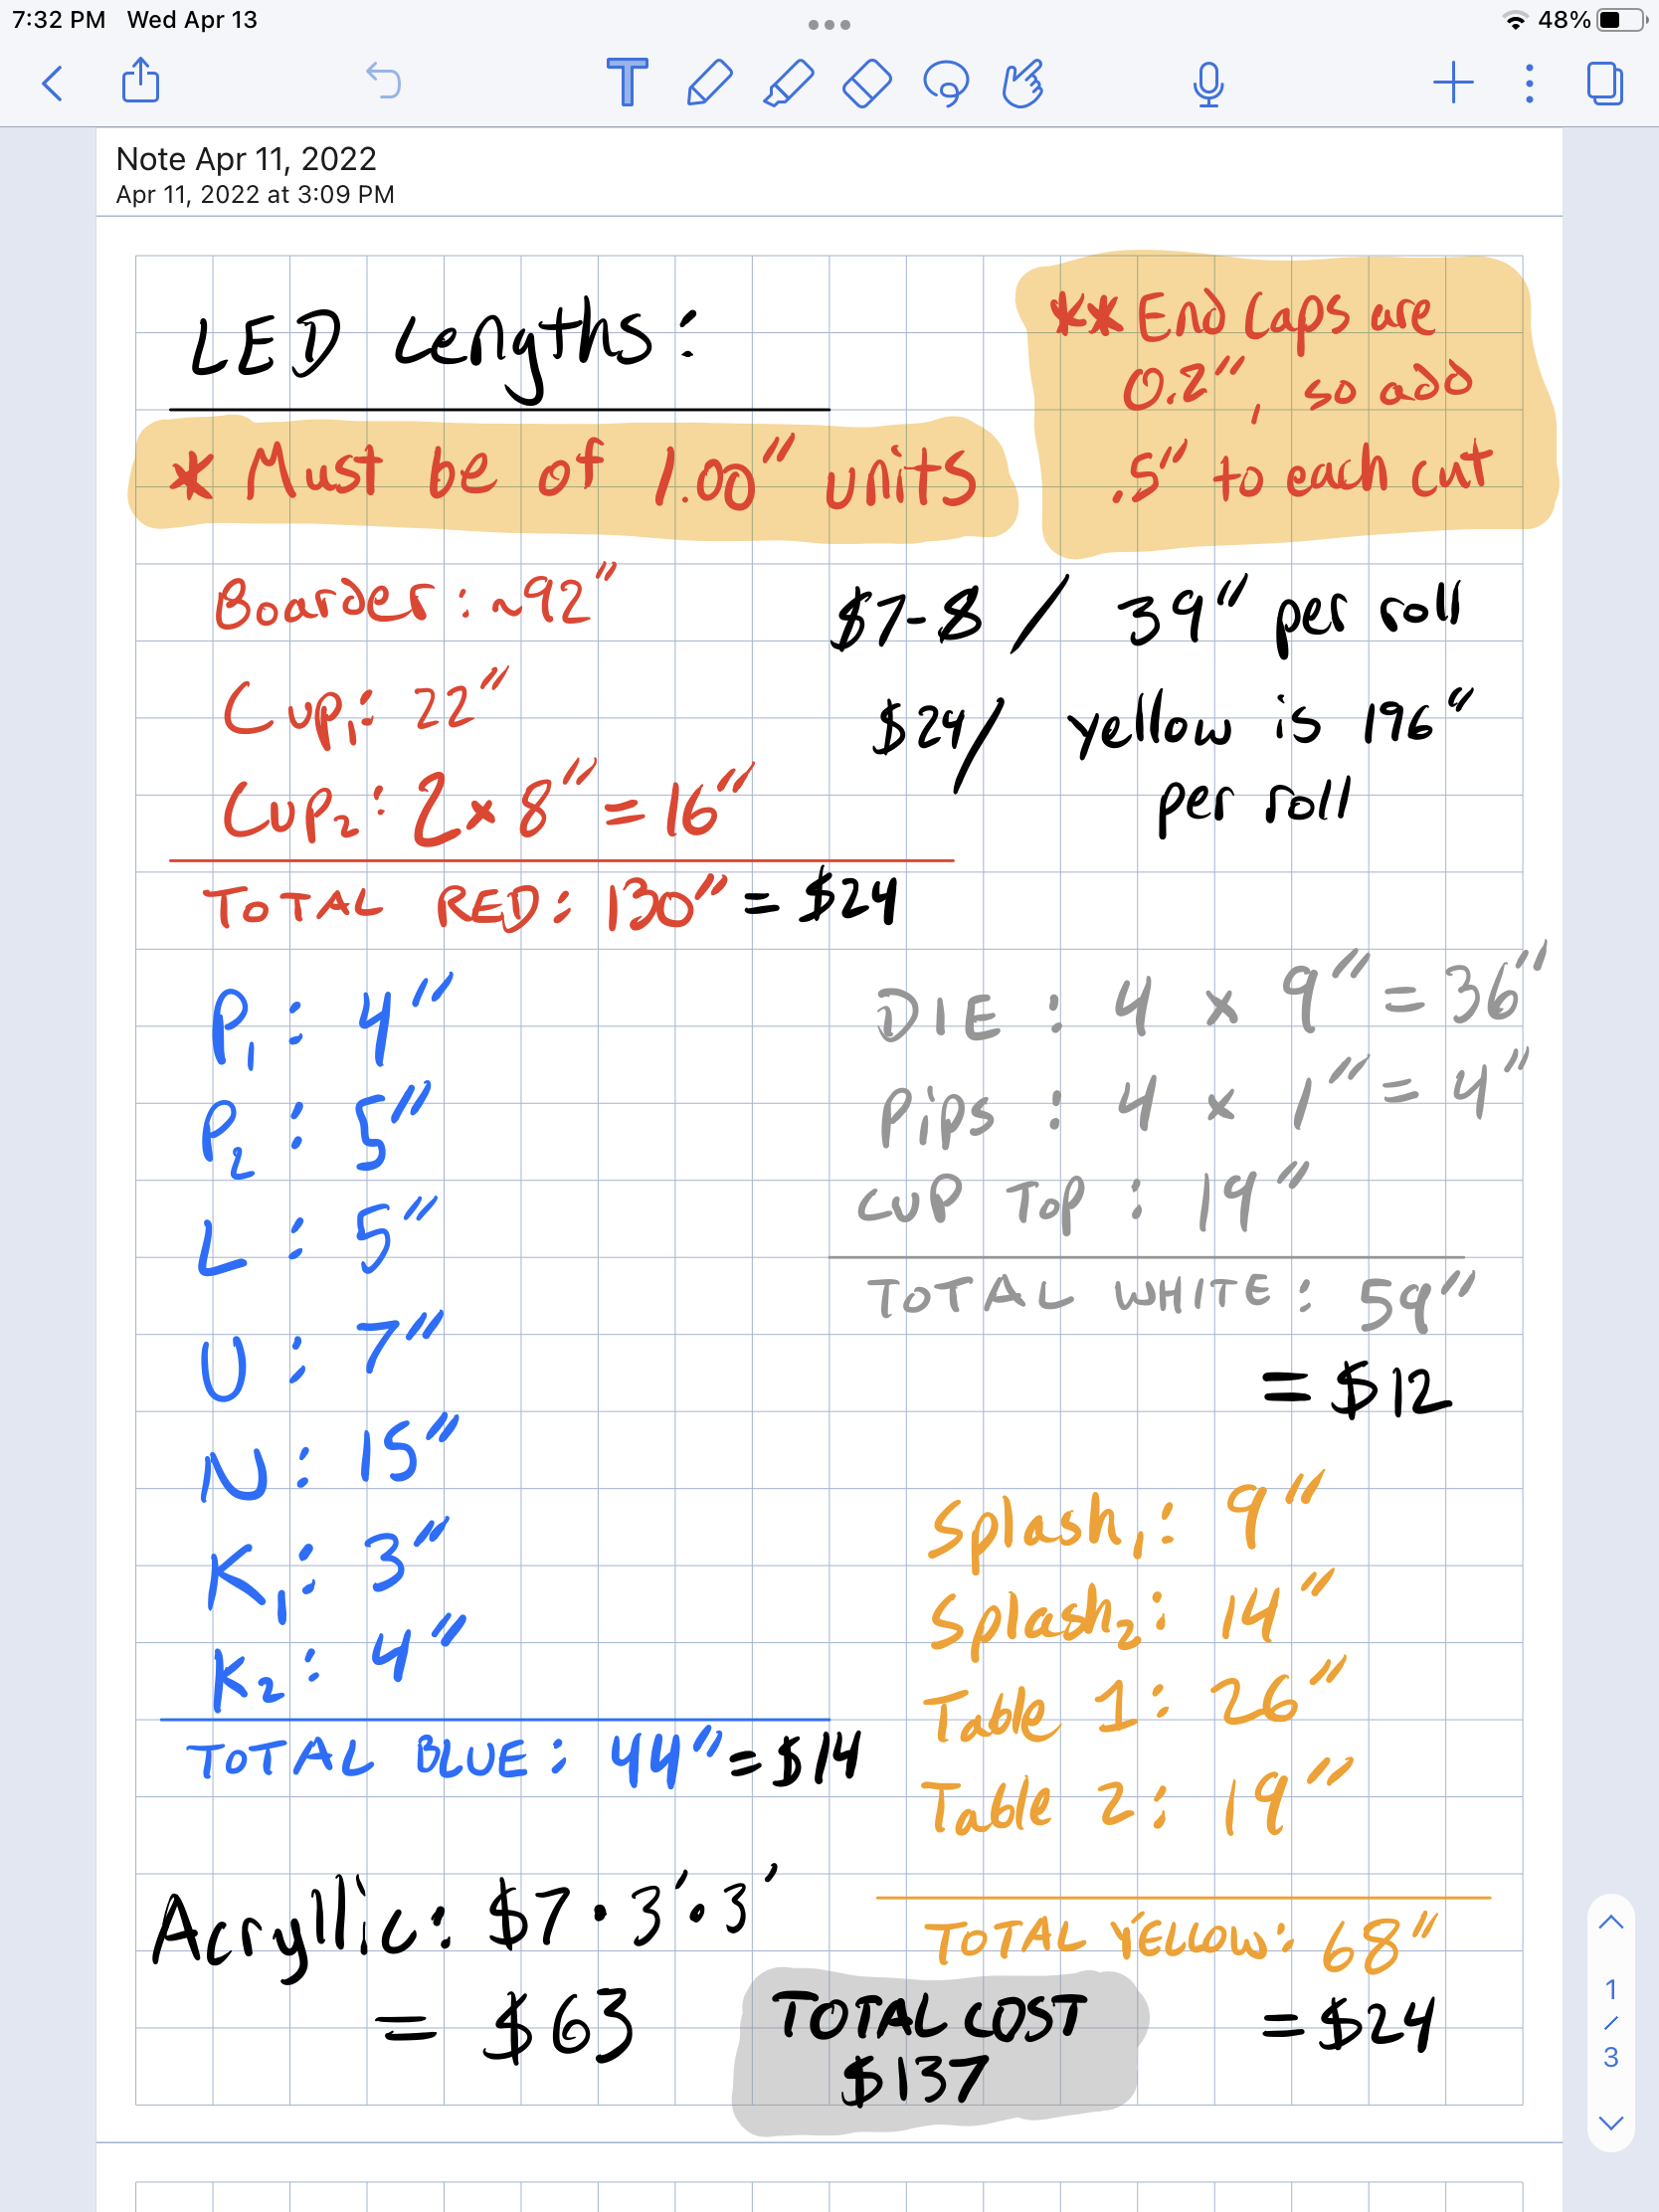 7:32 PM Wed Apr 13
48%
Note Apr 11, 2022
Apr 11, 2022 at 3:09 PM
LED Lengths:
* Must be of 1.00" units
** End Caps are
0.2", so add
.5" to each cut
Boarder: ~92"
Cup₁: 22"
Cup₂: 2 x 8" = 16"
TOTAL RED: 130" = $24
$7-8 / 39" per roll
$24/ yellow is 196"
per roll
P₁: 4"
P₂: 5"
L: 5"
U: 7"
N: 15"
K₁: 3"
K₂: 4"
TOTAL BLUE: 44" = $14
DIE: 4 x 9" = 36"
Pips: 4 x 1" = 4"
CUP TOP: 19"
TOTAL WHITE: 59"
= $12
Splash₁: 9"
Splash₂: 14"
Table 1: 26"
Table 2: 19"
TOTAL YELLOW: 68"
= $24
Acryllic: $7 · 3' · 3'
= $63
TOTAL COST
$137
1
/
3